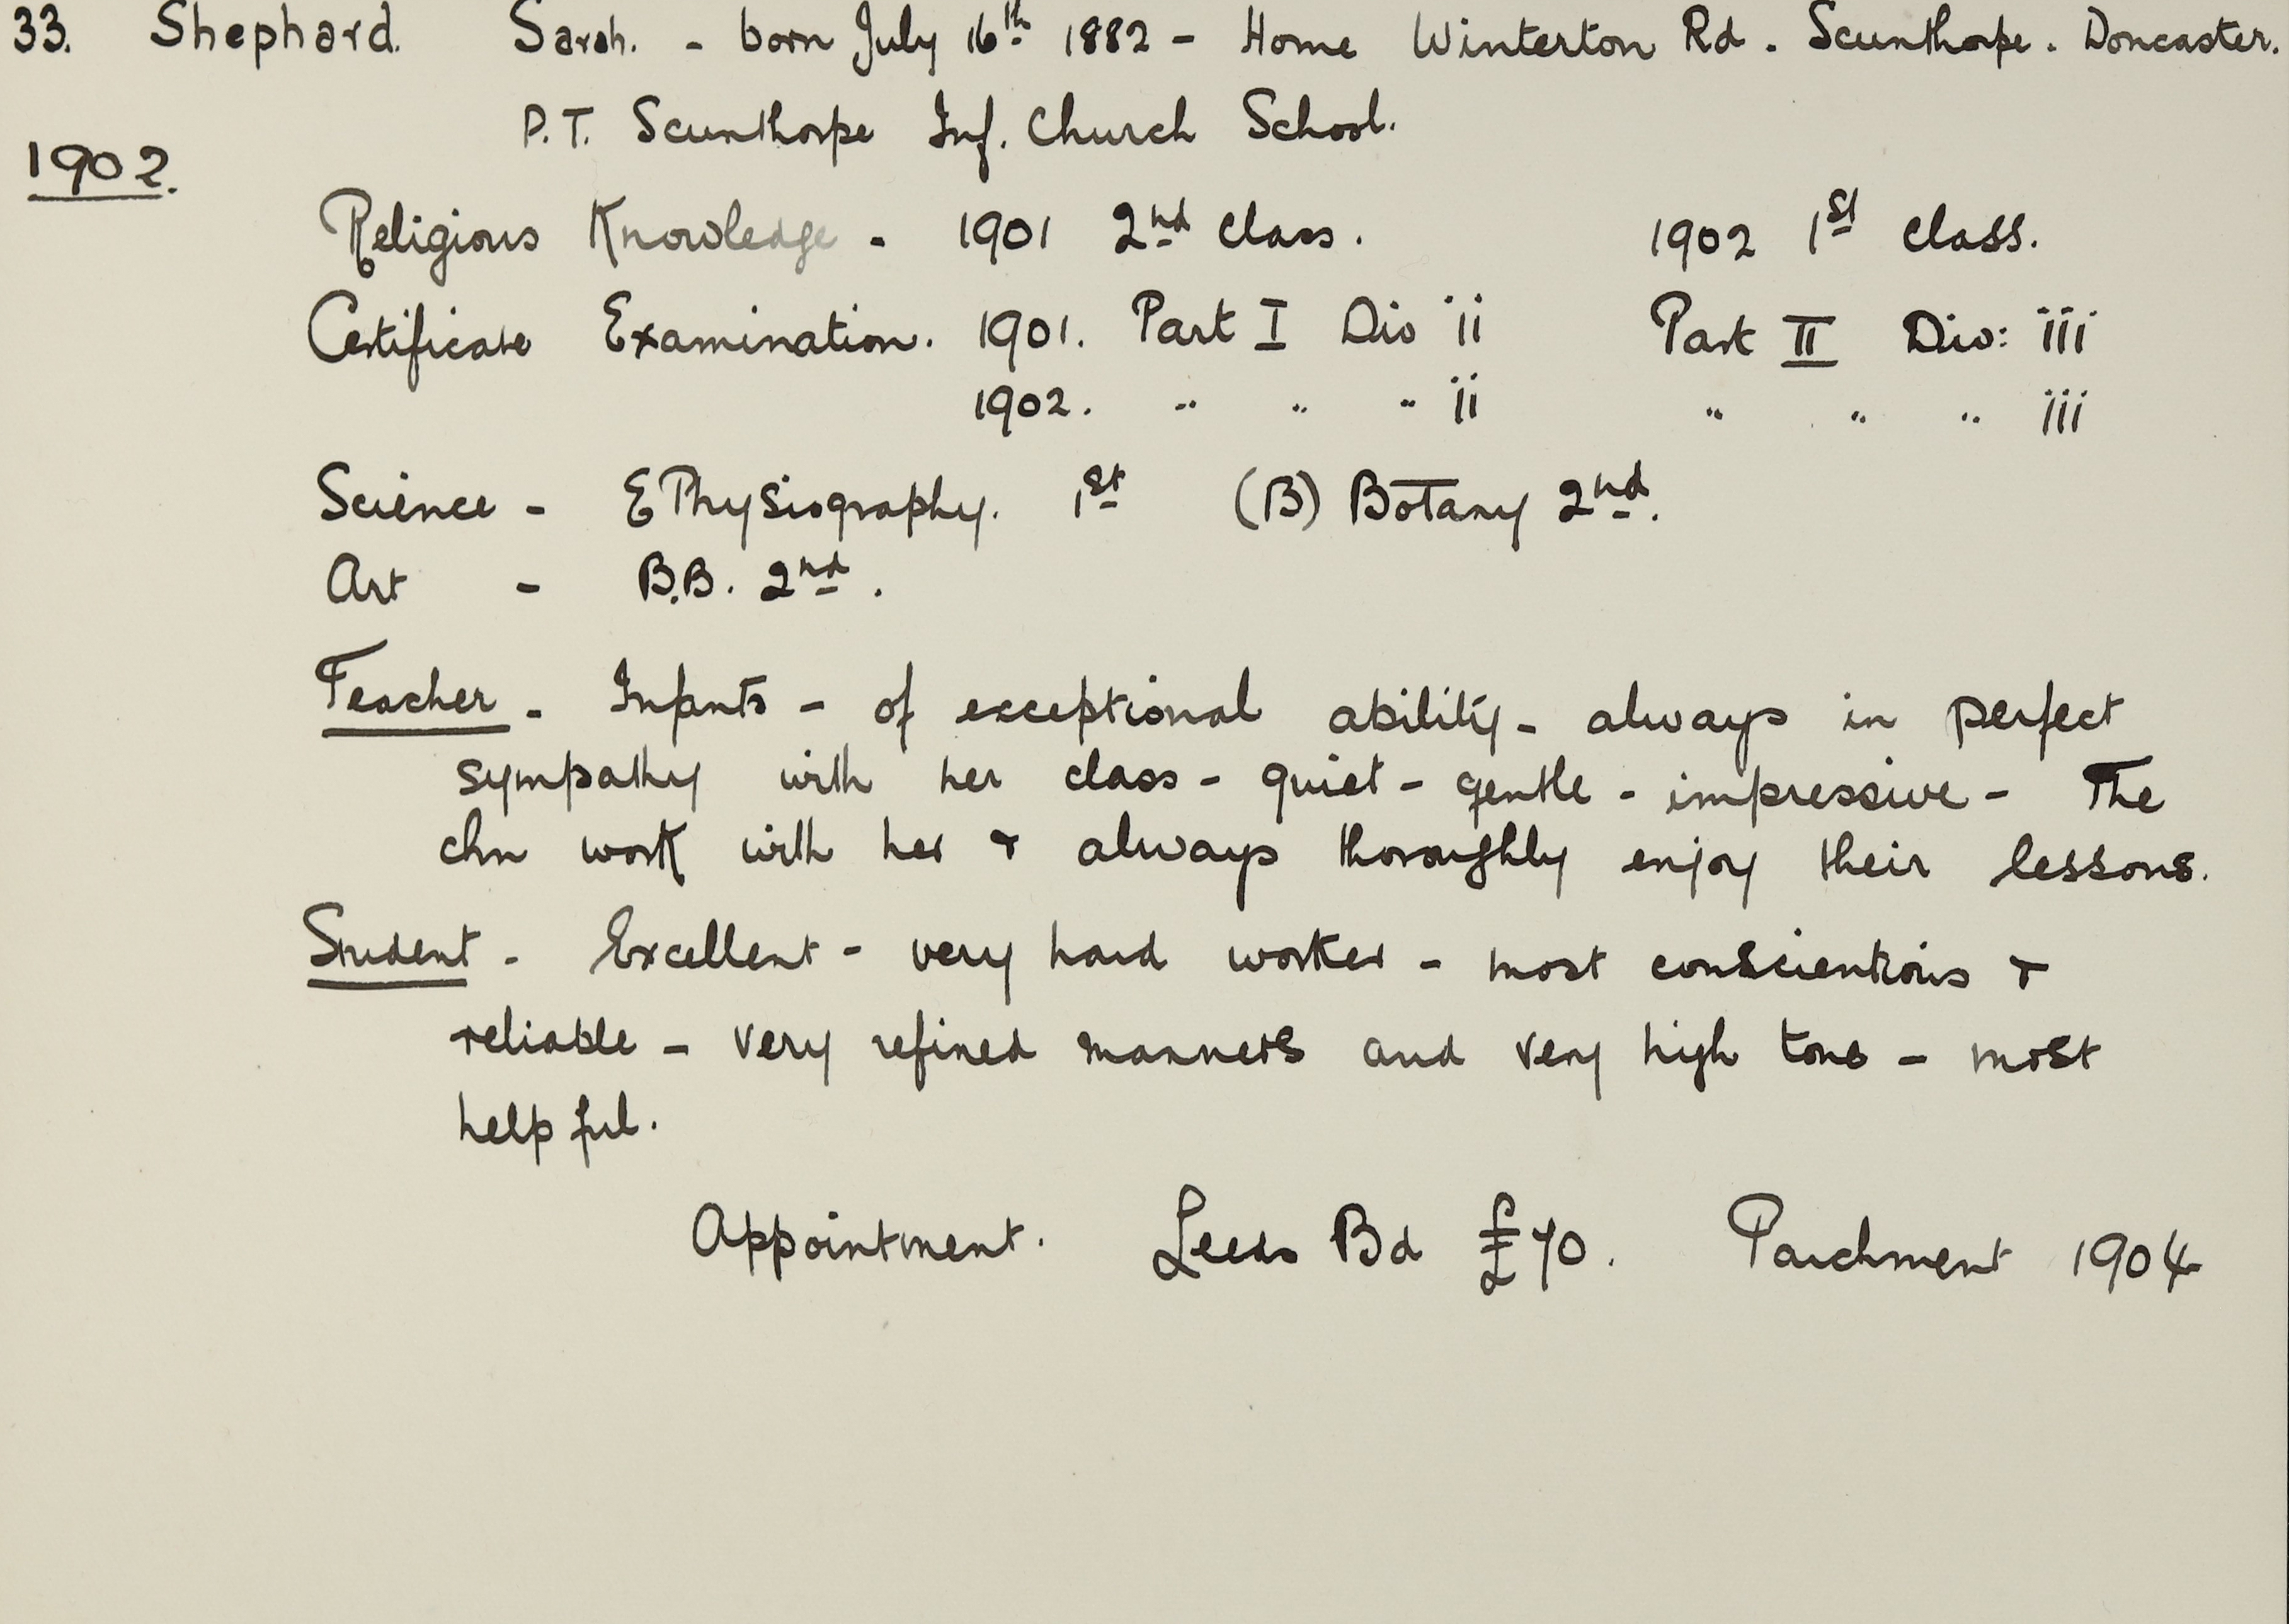 33. Shephard. Sarah. - born July 16th 1882 - Home Winterton Rd. Scunthorpe. Doncaster.
P.T. Scunthorpe Inf. Church School.
1902.
Religious Knowledge - 1901 2nd Class. 1902 1st Class.
Certificate Examination. 1901. Part I Div ii Part II Div: iii
1902. " " " ii " " " iii
Science - E Physiography. 1st (B) Botany 2nd.
Art - B.B. 2nd.
Teacher - Infants - of exceptional ability - always in perfect
sympathy with her class - quiet - gentle - impressive - The
chn work with her & always thoroughly enjoy their lessons.
Student - Excellent - very hard worker - most conscientious &
reliable - very refined manners and very high tone - most
helpful.
Appointment. Leeds Bd £70. Parchment 1904